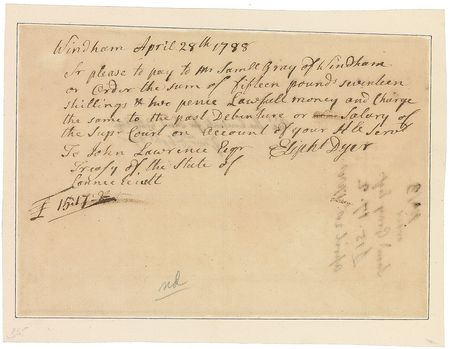 Windham April 28th 1788
Sr please to pay to Mr Samll Gray of Windham
or Order the sum of fifteen pounds seventeen
shillings & two pence Lawfull money and Charge
the same to the past Debenture or Salary of
the Supr Court on account of your Hle Servt
To John Lawrence Esqr Elipht Dyer
Treasr of the State of
Connecticutt
£ 15:17:2
nd